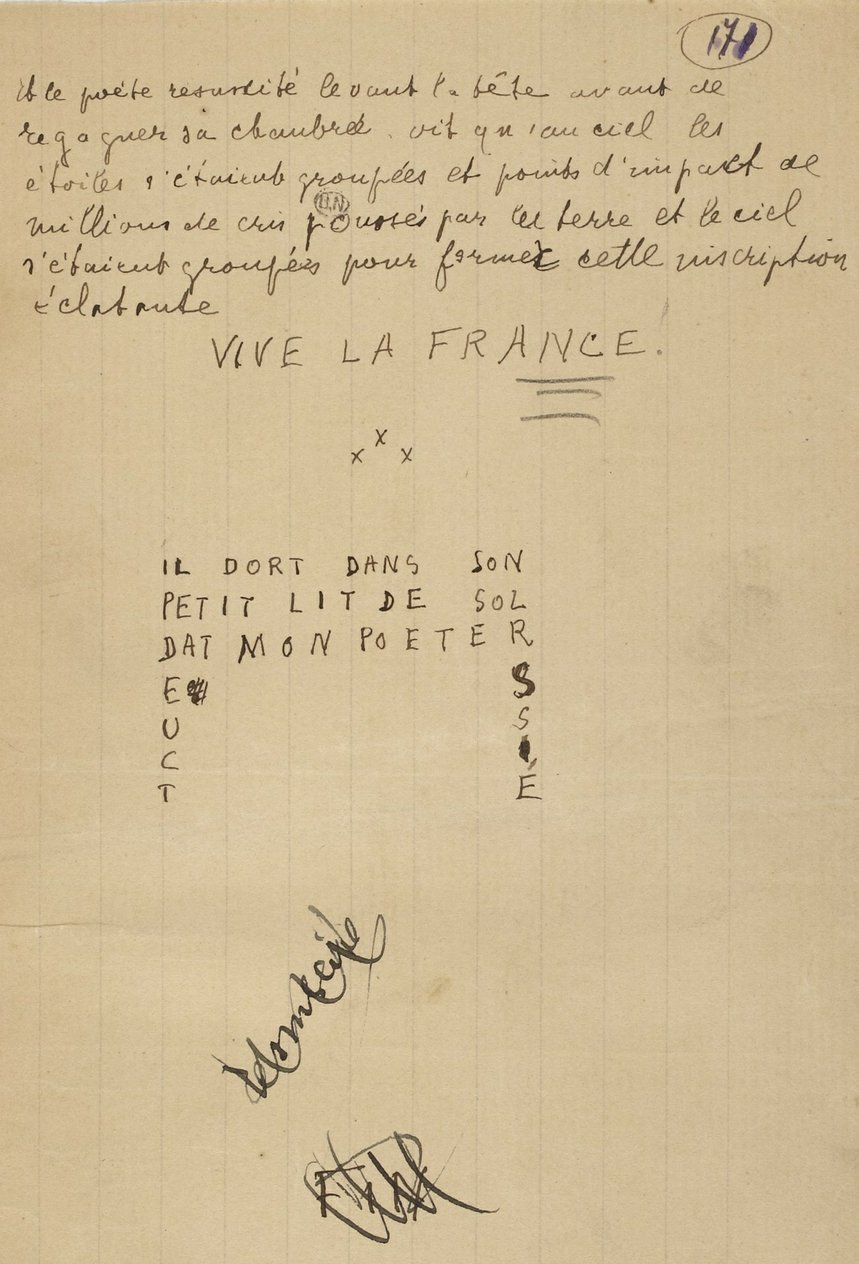 171
Et le poète ressuscité levant la tête avant de
regagner sa chambre vit qu'au ciel les
étoiles s'étaient groupées et points d'impact de
millions de cris poussés par la terre et le ciel
s'étaient groupées pour former cette inscription
éclatante
VIVE LA FRANCE.
x x x
IL DORT DANS SON
PETIT LIT DE SOL
DAT MON POETE R
E S
U S
C I
T E